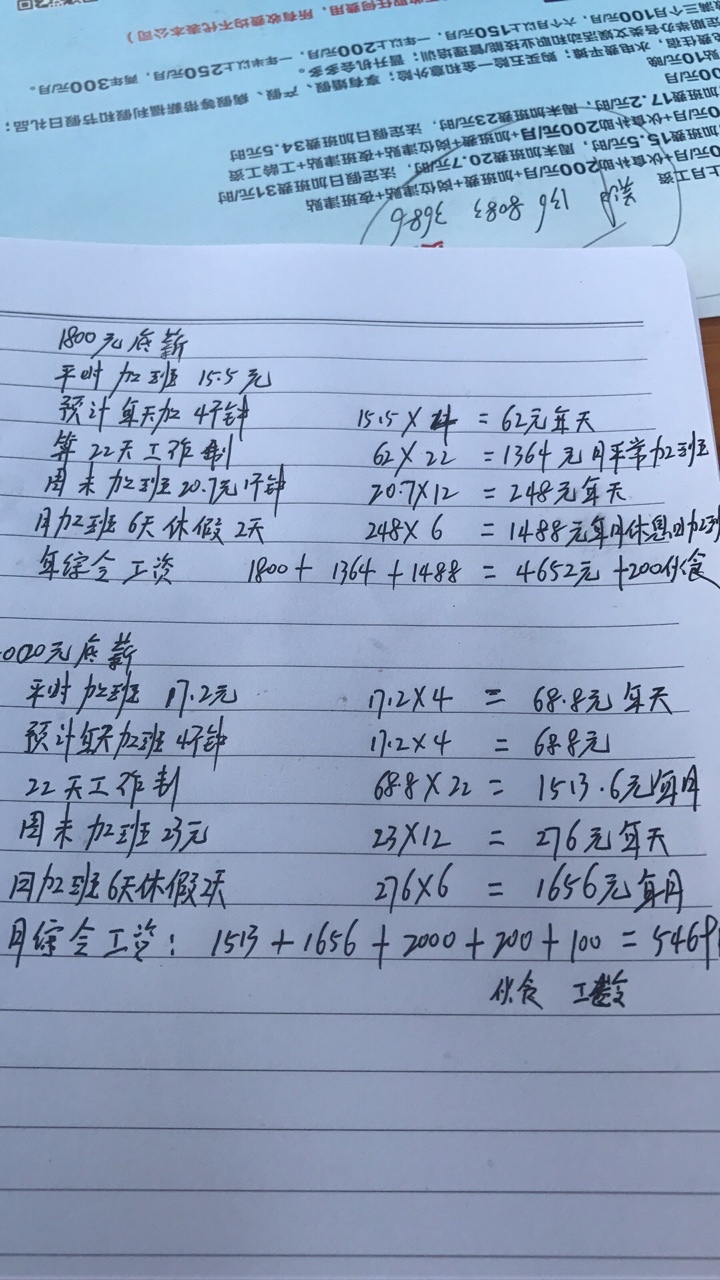 所有收费均不代表本公司）
满三个月100元/月，六个月以上150元/月，一年以上200元/月，一年半以上250元/月，两年300元/月。
定期举办各类文娱活动和职业技能/管理培训；晋升机会多多。
费住宿，水电费平摊；购买五险一金和意外险；享有婚假、产假、病假等带薪福利和节假日礼品；
贴10元/晚
00元/月
加班费17.2元/时，周末加班费23元/时，法定假日加班费34.5元/时
0元/月+伙食补助200元/月+加班费+岗位津贴+夜班津贴+工龄工资
加班费15.5元/时，周末加班费20.7元/时，法定假日加班费31元/时
0元/月+伙食补助200元/月+加班费+岗位津贴+夜班津贴
上月工资
136 8083 3686
1800元底薪
平时加班 15.5元
预计每天加 4个钟 15.5×4 = 62元每天
算22天工作制 62×22 = 1364元月平常加班
周末加班20.7元1个钟 20.7×12 = 248元每天
月加班6天休假2天 248×6 = 1488元每月休息日加班
每综合工资 1800+1364+1488 = 4652元+200伙食
2000元底薪
平时加班 17.2元 17.2×4 = 68.8元每天
预计每天加班4个钟 17.2×4 = 68.8元
22天工作制 68.8×22 = 1513.6元每月
周末加班23元 23×12 = 276元每天
月加班6天休假2天 276×6 = 1656元每月
月综合工资：1513+1656+2000+200+100=5469
伙食 工龄